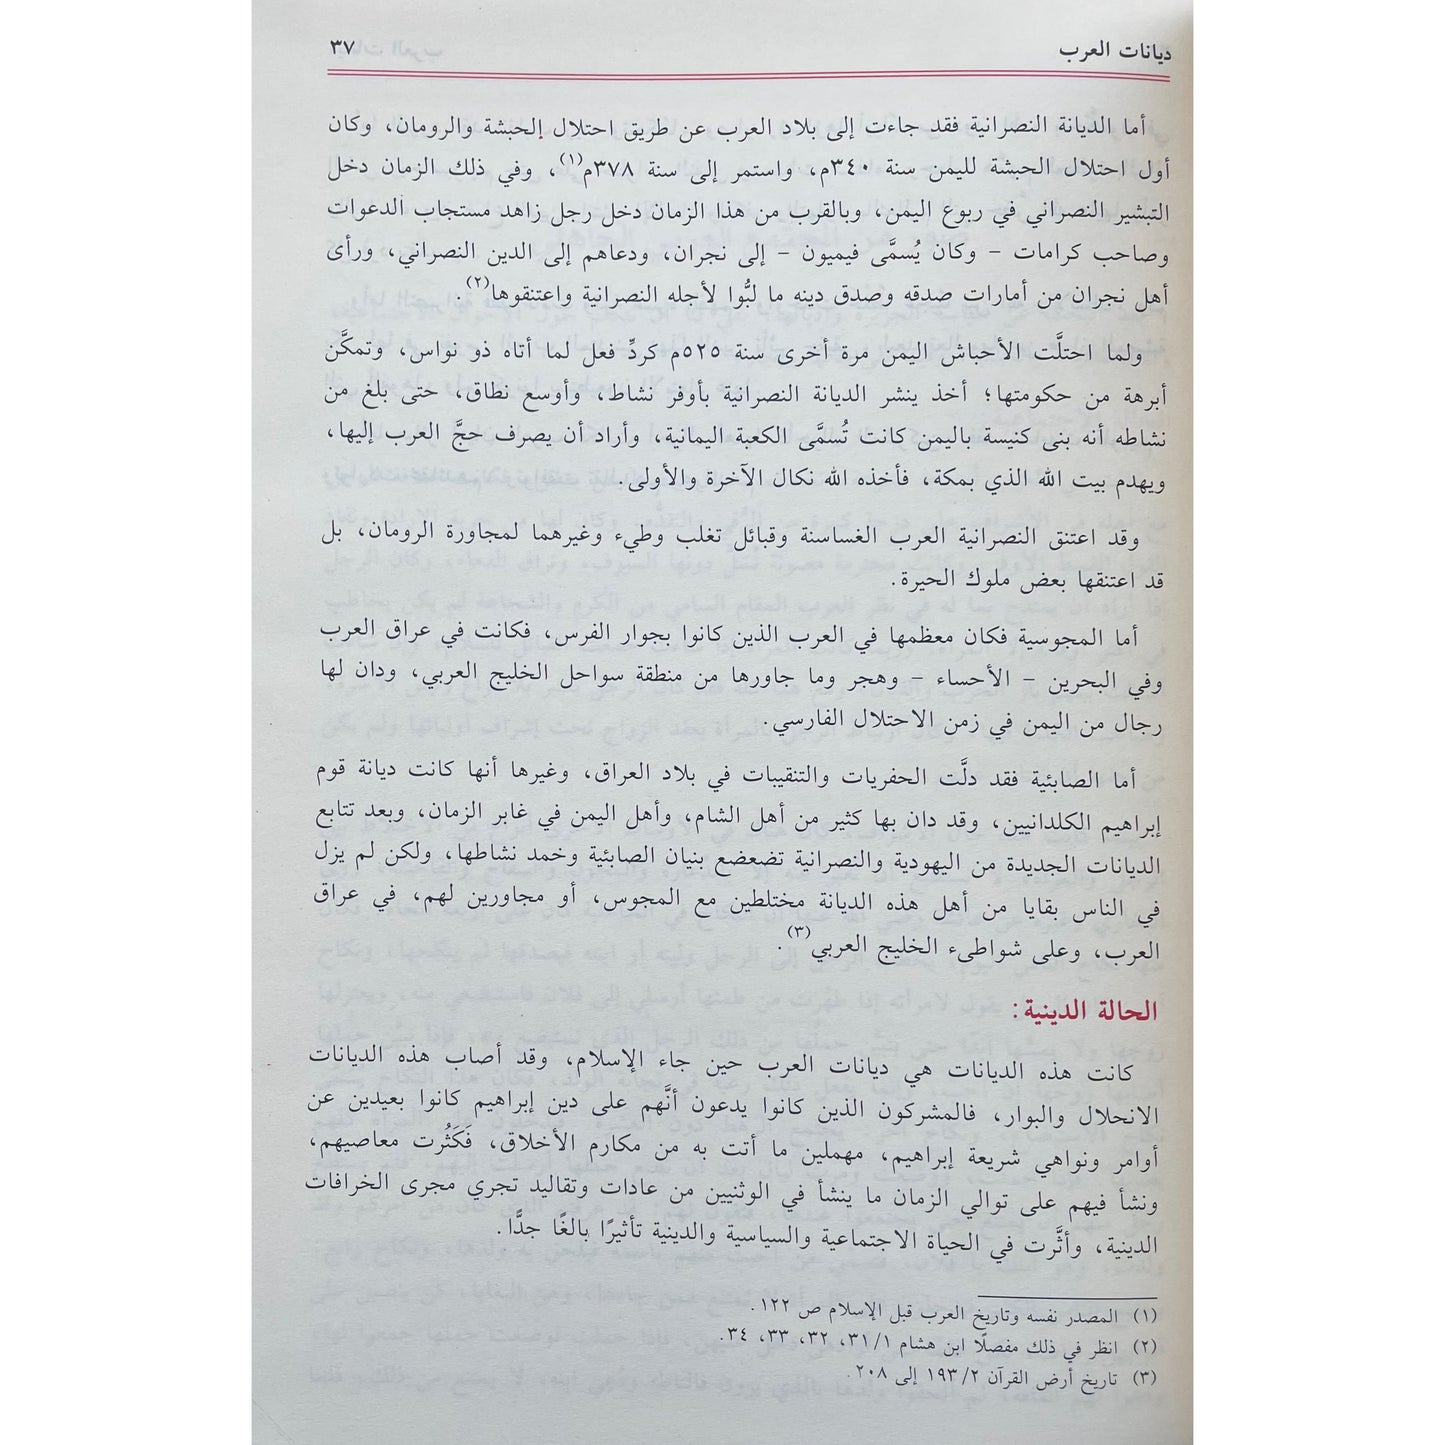 ديانات العرب ٣٧
أما الديانة النصرانية فقد جاءت إلى بلاد العرب عن طريق احتلال الحبشة والرومان، وكان
أول احتلال الحبشة لليمن سنة ٣٤٠م، واستمر إلى سنة ٣٧٨م(١)، وفي ذلك الزمان دخل
التبشير النصراني في ربوع اليمن، وبالقرب من هذا الزمان دخل رجل زاهد مستجاب الدعوات
وصاحب كرامات – وكان يُسمَّى فيميون – إلى نجران، ودعاهم إلى الدين النصراني، ورأى
أهل نجران من أمارات صدقه وصدق دينه ما لبُّوا لأجله النصرانية واعتنقوها(٢).
ولما احتلَّت الأحباش اليمن مرة أخرى سنة ٥٢٥م كردِّ فعل لما أتاه ذو نواس، وتمكَّن
أبرهة من حكومتها؛ أخذ ينشر الديانة النصرانية بأوفر نشاط، وأوسع نطاق، حتى بلغ من
نشاطه أنه بنى كنيسة باليمن كانت تُسمَّى الكعبة اليمانية، وأراد أن يصرف حجَّ العرب إليها،
ويهدم بيت الله الذي بمكة، فأخذه الله نكال الآخرة والأولى.
وقد اعتنق النصرانية العرب الغساسنة وقبائل تغلب وطيء وغيرهما لمجاورة الرومان، بل
قد اعتنقها بعض ملوك الحيرة.
أما المجوسية فكان معظمها في العرب الذين كانوا بجوار الفرس، فكانت في عراق العرب
وفي البحرين – الأحساء – وهجر وما جاورها من منطقة سواحل الخليج العربي، ودان لها
رجال من اليمن في زمن الاحتلال الفارسي.
أما الصابئية فقد دلَّت الحفريات والتنقيبات في بلاد العراق، وغيرها أنها كانت ديانة قوم
إبراهيم الكلدانيين، وقد دان بها كثير من أهل الشام، وأهل اليمن في غابر الزمان، وبعد تتابع
الديانات الجديدة من اليهودية والنصرانية تضعضع بنيان الصابئية وخمد نشاطها، ولكن لم يزل
في الناس بقايا من أهل هذه الديانة مختلطين مع المجوس، أو مجاورين لهم، في عراق
العرب، وعلى شواطىء الخليج العربي(٣).
الحالة الدينية:
كانت هذه الديانات هي ديانات العرب حين جاء الإسلام، وقد أصاب هذه الديانات
الانحلال والبوار، فالمشركون الذين كانوا يدعون أنَّهم على دين إبراهيم كانوا بعيدين عن
أوامر ونواهي شريعة إبراهيم، مهملين ما أتت به من مكارم الأخلاق، فَكَثُرت معاصيهم،
ونشأ فيهم على توالي الزمان ما ينشأ في الوثنيين من عادات وتقاليد تجري مجرى الخرافات
الدينية، وأثَّرت في الحياة الاجتماعية والسياسية والدينية تأثيرًا بالغًا جدًّا.
(١) المصدر نفسه وتاريخ العرب قبل الإسلام ص ١٢٢.
(٢) انظر في ذلك مفصلًا ابن هشام ٣١/١، ٣٢، ٣٣، ٣٤.
(٣) تاريخ أرض القرآن ١٩٣/٢ إلى ٢٠٨.